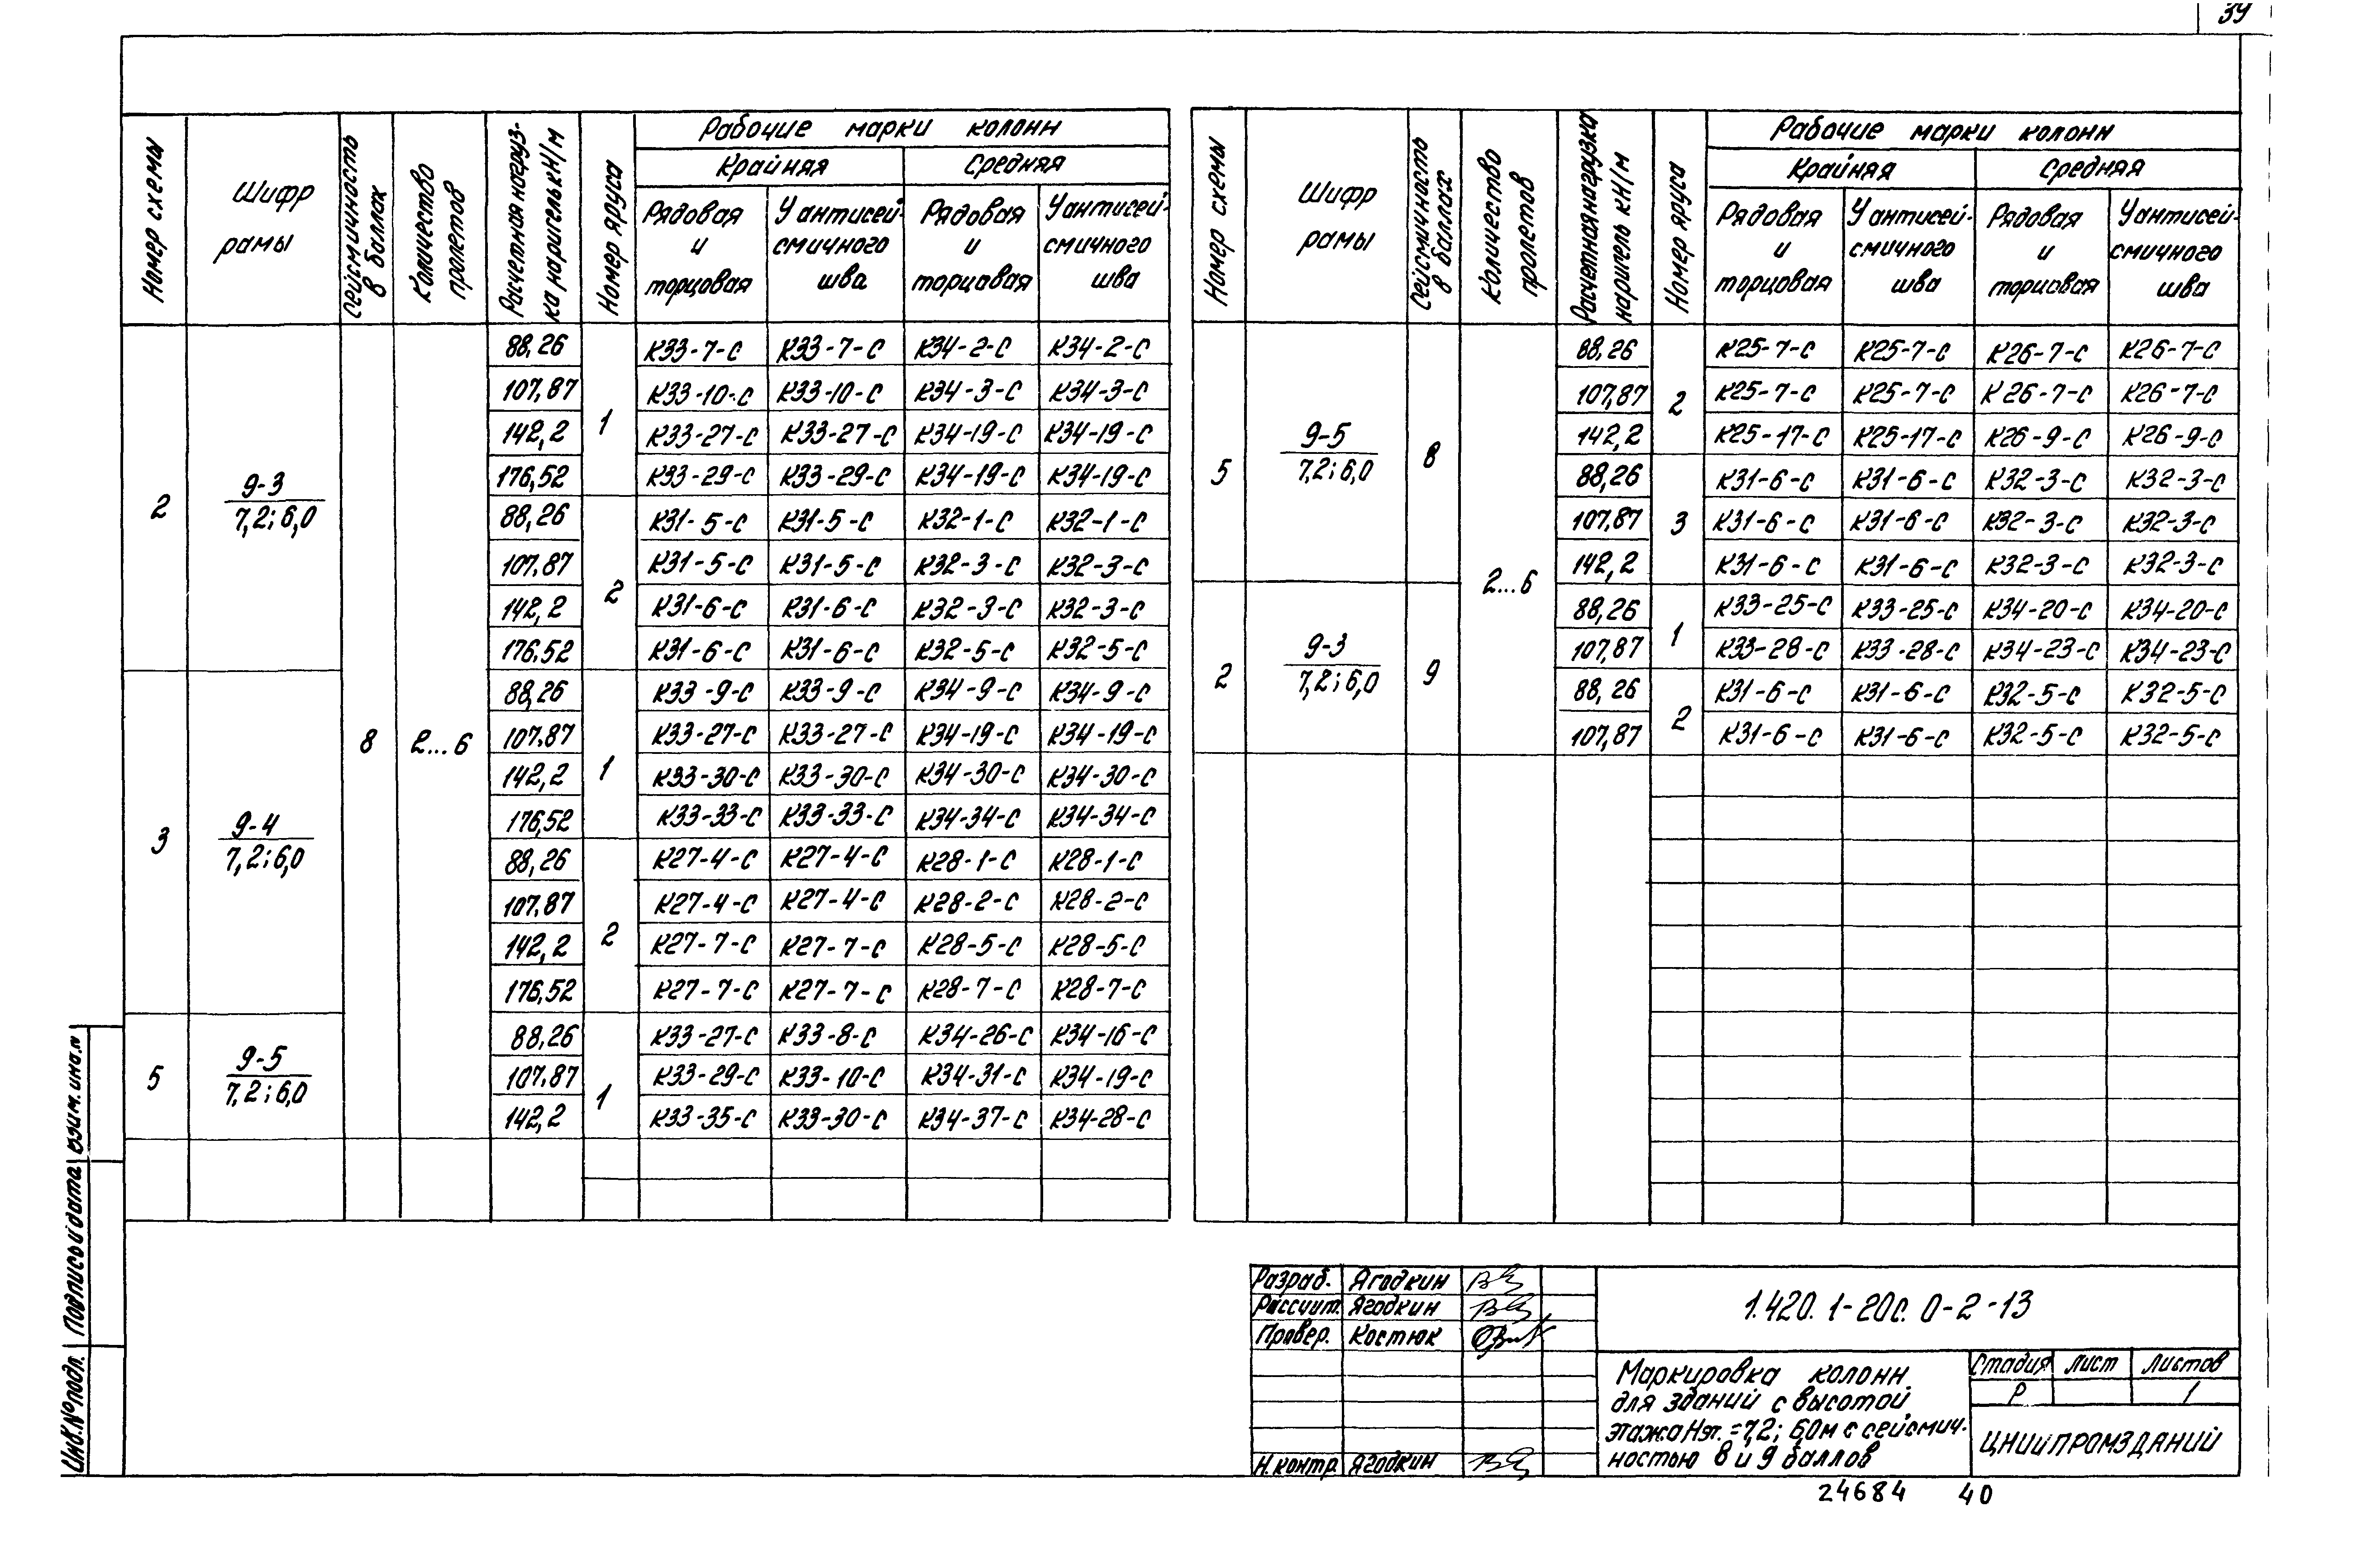 39
Номер схемы
Шифр рамы
Сейсмичность в баллах
Количество пролетов
Расчетная нагруз- ка на ригель кН/м
Номер яруса
Рабочие марки колонн
Крайняя Средняя
Рядовая и торцовая
У антисей- смичного шва
Рядовая и торцовая
У антисей- смичного шва
2 9-3 7,2; 6,0 8 2...6
88,26 1 К33-7-С К33-7-С К34-2-С К34-2-С
107,87 К33-10-С К33-10-С К34-3-С К34-3-С
142,2 К33-27-С К33-27-С К34-19-С К34-19-С
176,52 К33-29-С К33-29-С К34-19-С К34-19-С
88,26 2 К31-5-С К31-5-С К32-1-С К32-1-С
107,87 К31-5-С К31-5-С К32-3-С К32-3-С
142,2 К31-6-С К31-6-С К32-3-С К32-3-С
176,52 К31-6-С К31-6-С К32-5-С К32-5-С
3 9-4 7,2; 6,0
88,26 1 К33-9-С К33-9-С К34-9-С К34-9-С
107,87 К33-27-С К33-27-С К34-19-С К34-19-С
142,2 К33-30-С К33-30-С К34-30-С К34-30-С
176,52 К33-33-С К33-33-С К34-34-С К34-34-С
88,26 2 К27-4-С К27-4-С К28-1-С К28-1-С
107,87 К27-4-С К27-4-С К28-2-С К28-2-С
142,2 К27-7-С К27-7-С К28-5-С К28-5-С
176,52 К27-7-С К27-7-С К28-7-С К28-7-С
5 9-5 7,2; 6,0
88,26 1 К33-27-С К33-8-С К34-26-С К34-16-С
107,87 К33-29-С К33-10-С К34-31-С К34-19-С
142,2 К33-35-С К33-30-С К34-37-С К34-28-С
Номер схемы
Шифр рамы
Сейсмичность в баллах
Количество пролетов
Расчетная нагрузка на ригель кН/м
Номер яруса
Рабочие марки колонн
Крайняя Средняя
Рядовая и торцовая
У антисей- смичного шва
Рядовая и торцовая
У антисей- смичного шва
5 9-5 7,2; 6,0 8 2...6
88,26 2 К25-7-С К25-7-С К26-7-С К26-7-С
107,87 К25-7-С К25-7-С К26-7-С К26-7-С
142,2 К25-17-С К25-17-С К26-9-С К26-9-С
88,26 3 К31-6-С К31-6-С К32-3-С К32-3-С
107,87 К31-6-С К31-6-С К32-3-С К32-3-С
142,2 К31-6-С К31-6-С К32-3-С К32-3-С
2 9-3 7,2; 6,0 9
88,26 1 К33-25-С К33-25-С К34-20-С К34-20-С
107,87 К33-28-С К33-28-С К34-23-С К34-23-С
88,26 2 К31-6-С К31-6-С К32-5-С К32-5-С
107,87 К31-6-С К31-6-С К32-5-С К32-5-С
Инв.№ подл. Подпись и дата Взим. инв. №
Разраб. Ягодкин
Рассчит. Ягодкин
Провер. Костюк
Н.контр. Ягодкин
1.420.1-20с. 0-2-13
Маркировка колонн
для зданий с высотой
этажа Нэт. = 7,2; 6,0м с сейсмич-
ностью 8 и 9 баллов
Стадия Лист Листов
Р 1
ЦНИИПРОМЗДАНИЙ
24684 40